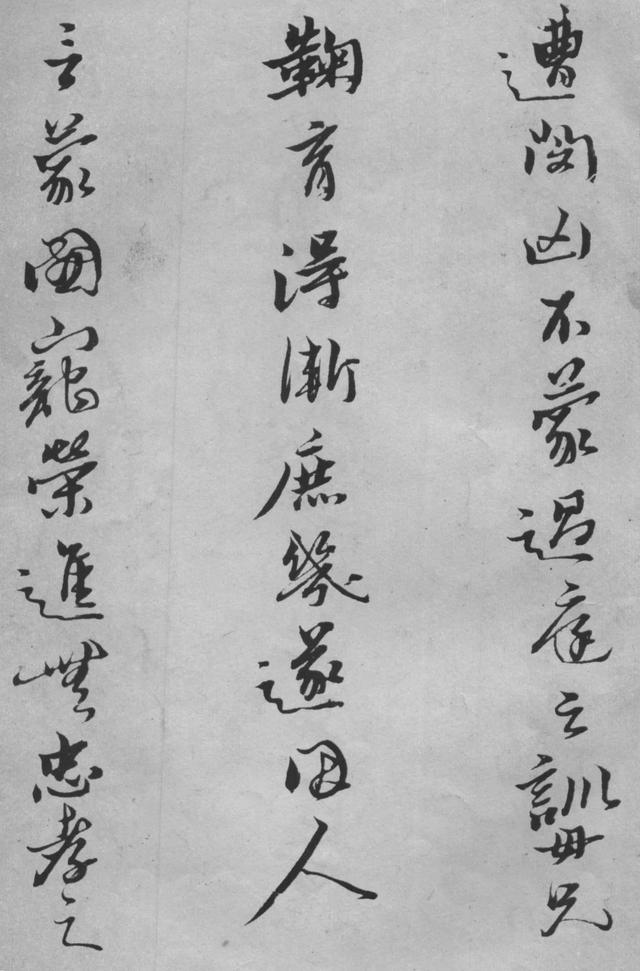 遭閔凶不蒙過庭之訓母兄
鞠育得漸庶幾遂因人
乏蒙國寵榮進無忠孝之